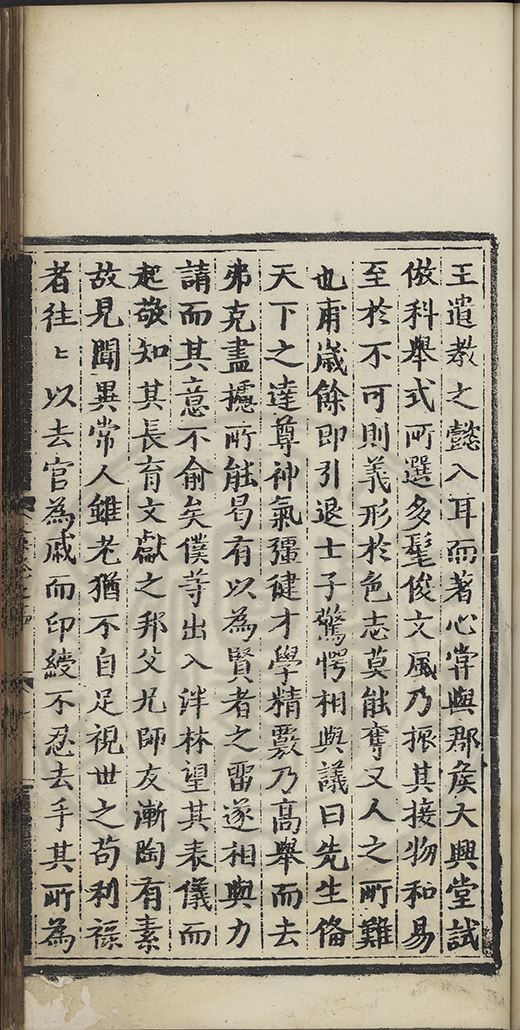 王遺教之懿入耳而著心嘗與郡矦大興堂試
倣科舉式所選多髦俊文風乃振其接物和易
至於不可則義形於色志莫能奪又人之所難
也甫歲餘即引退士子驚愕相與議曰先生偹
天下之達尊神氣彊健才學精覈乃高舉而去
弗克盡攄所能曷有以為賢者之留遂相與力
請而其意不俞矣僕等出入泮林望其表儀而
起敬知其長育文獻之邦父兄師友漸陶有素
故見聞異常人雖老猶不自足視世之苟利祿
者往〻以去官為戚而印綬不忍去手其所為